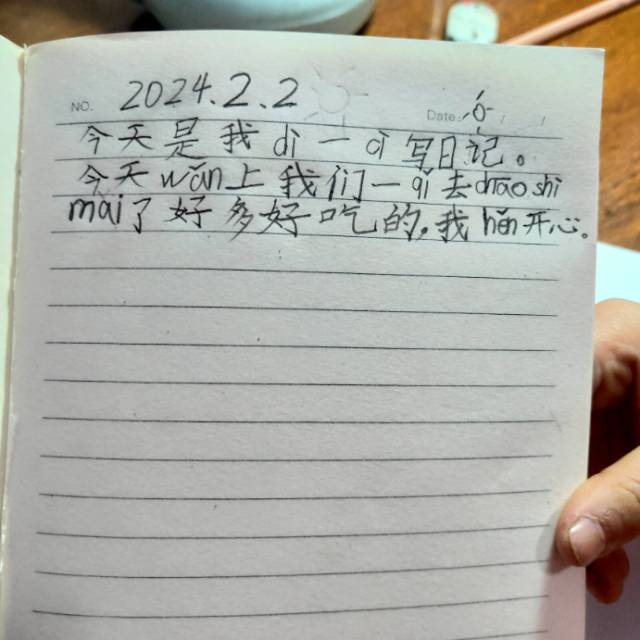 NO. 2024.2.2 Date:
今天是我 dì 一 qì 写日记。
今天 wǎn 上我们一 qǐ 去 chāo shì
mǎi 了好多好吃的,我 hěn 开心。